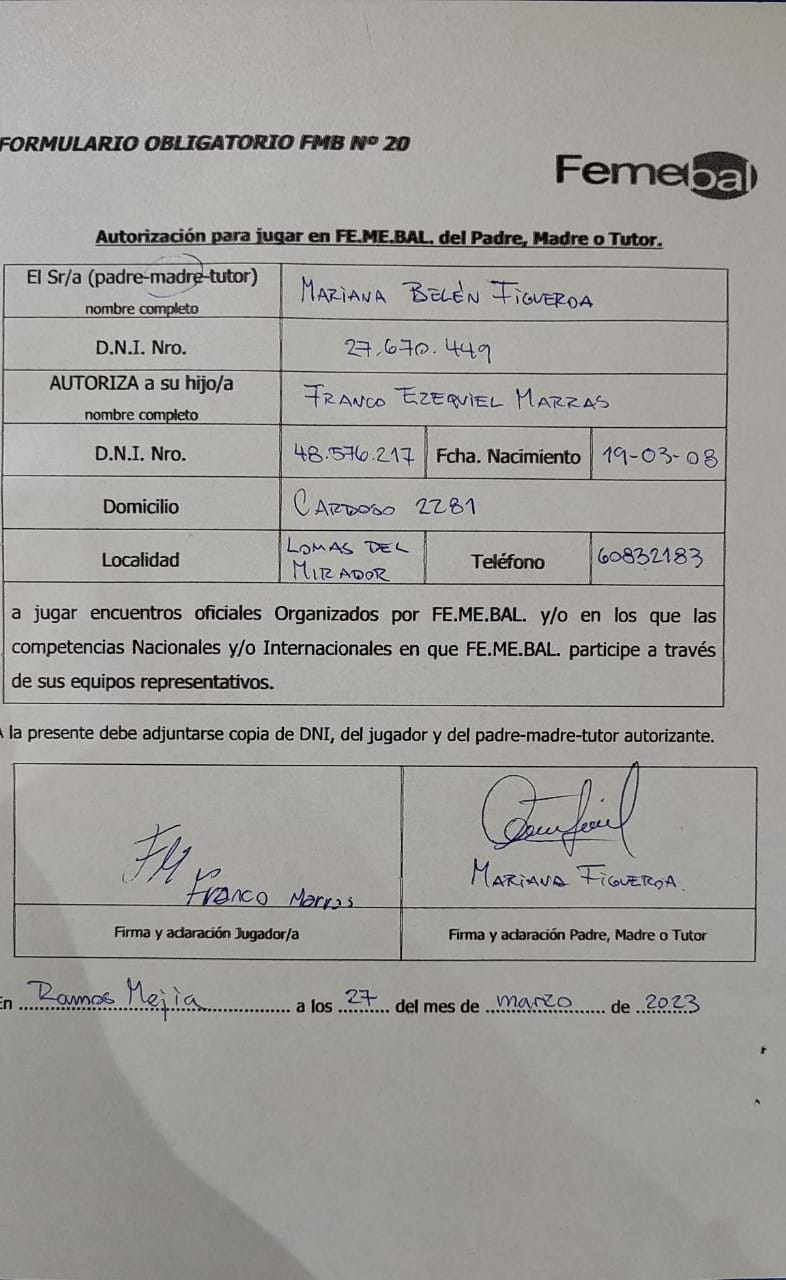 FORMULARIO OBLIGATORIO FMB Nº 20
Femebal
Autorización para jugar en FE.ME.BAL. del Padre, Madre o Tutor.
El Sr/a (padre-madre-tutor)
nombre completo
MARIANA BELÉN FIGUEROA
D.N.I. Nro.
27.670.449
AUTORIZA a su hijo/a
nombre completo
FRANCO EZEQUIEL MARRAS
D.N.I. Nro.
48.576.217
Fcha. Nacimiento
19-03-08
Domicilio
CARDOSO 2281
Localidad
LOMAS DEL
MIRADOR
Teléfono
60832183
a jugar encuentros oficiales Organizados por FE.ME.BAL. y/o en los que las
competencias Nacionales y/o Internacionales en que FE.ME.BAL. participe a través
de sus equipos representativos.
A la presente debe adjuntarse copia de DNI, del jugador y del padre-madre-tutor autorizante.
FM
Franco Marras
MARIANA FIGUEROA.
Firma y aclaración Jugador/a
Firma y aclaración Padre, Madre o Tutor
En Ramos Mejia a los 27 del mes de marzo de 2023